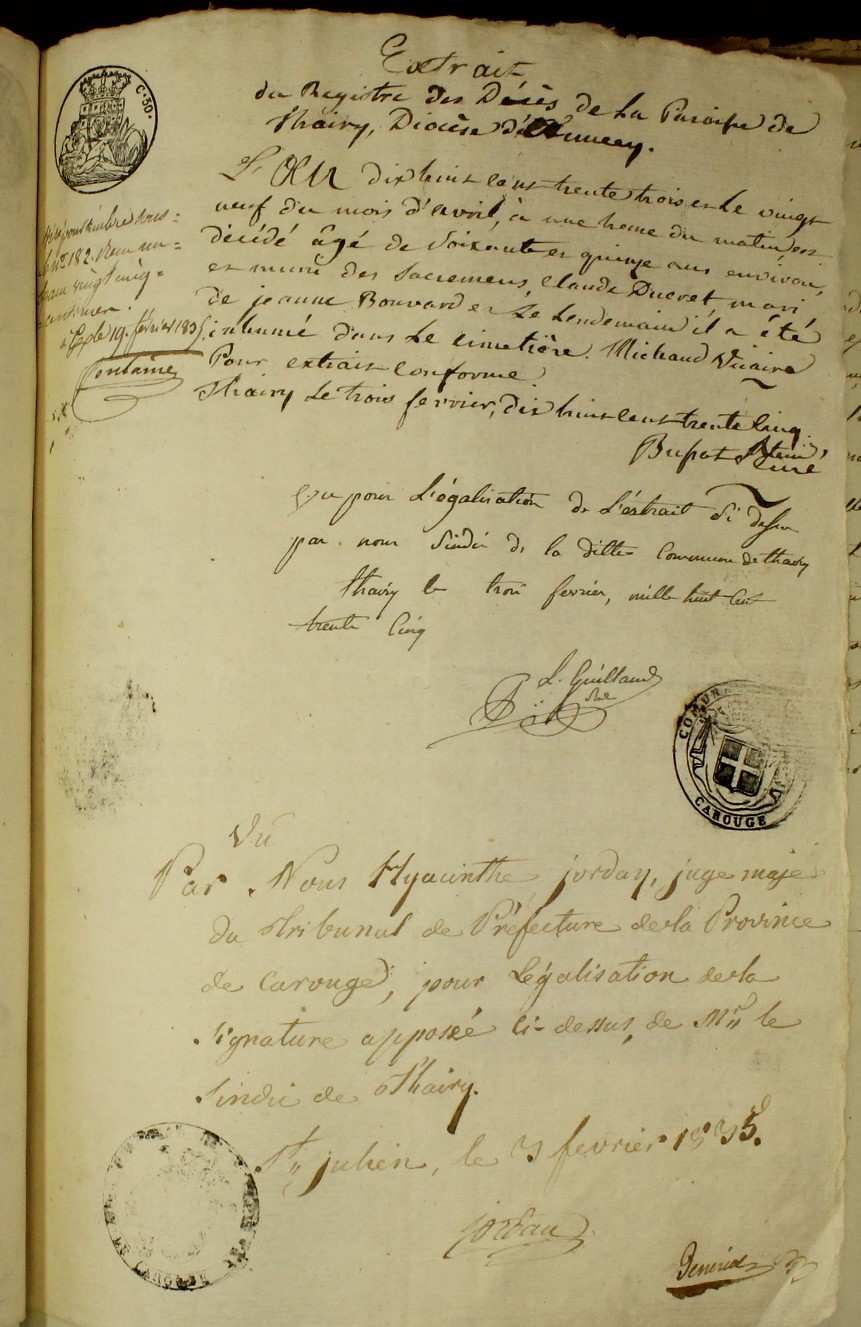 Extrait
du Registre des Décès de la Paroisse de
Thairy, Diocèse d'Annecy.
C. 50.
L'An dix huit cent trente trois et le vingt
neuf du mois d'avril, à une heure du matin, est
décédé âgé de soixante et quinze ans environ,
et muni des Sacremens, Claude Ducret mari
de jeanne Bouvard et Le Lendemain il a été
inhumé dans Le cimetière. Michaud Vicaire
Pour extrait conforme.
Thairy Le trois fevrier, dix huit cent trente cinq.
visé pour timbre sous
le N.º 182. Reçu un
franc vingt cinq
centimes.
19. février 1835.
Fontaine
Curé
Vu pour L'égalisation de L'extrait Si dessu
par nous Sindic de la ditte Commune de thairy
thairy le troi fevrier, mille huit cent
trente cinq
L. Guilland
COMUNE
CAROUGE
Vu
Par Nous Hyacinthe jorday, juge maje
du Tribunal de Préfecture de la Province
de Carouge, pour Légalisation de la
Signature apposée ci-dessus, de Mr le
Sindic de Thairy.
St julien, le 3 fevrier 1835.